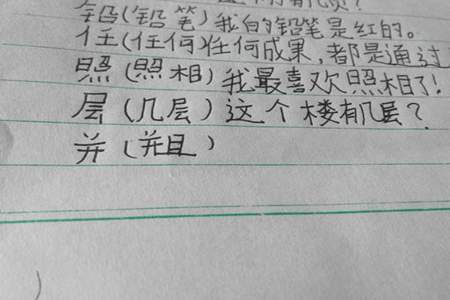 铅(铅笔)我的铅笔是红的。
任(任何)任何成果,都是通过
照(照相)我最喜欢照相了!
层(几层)这个楼有几层?
并(并且)